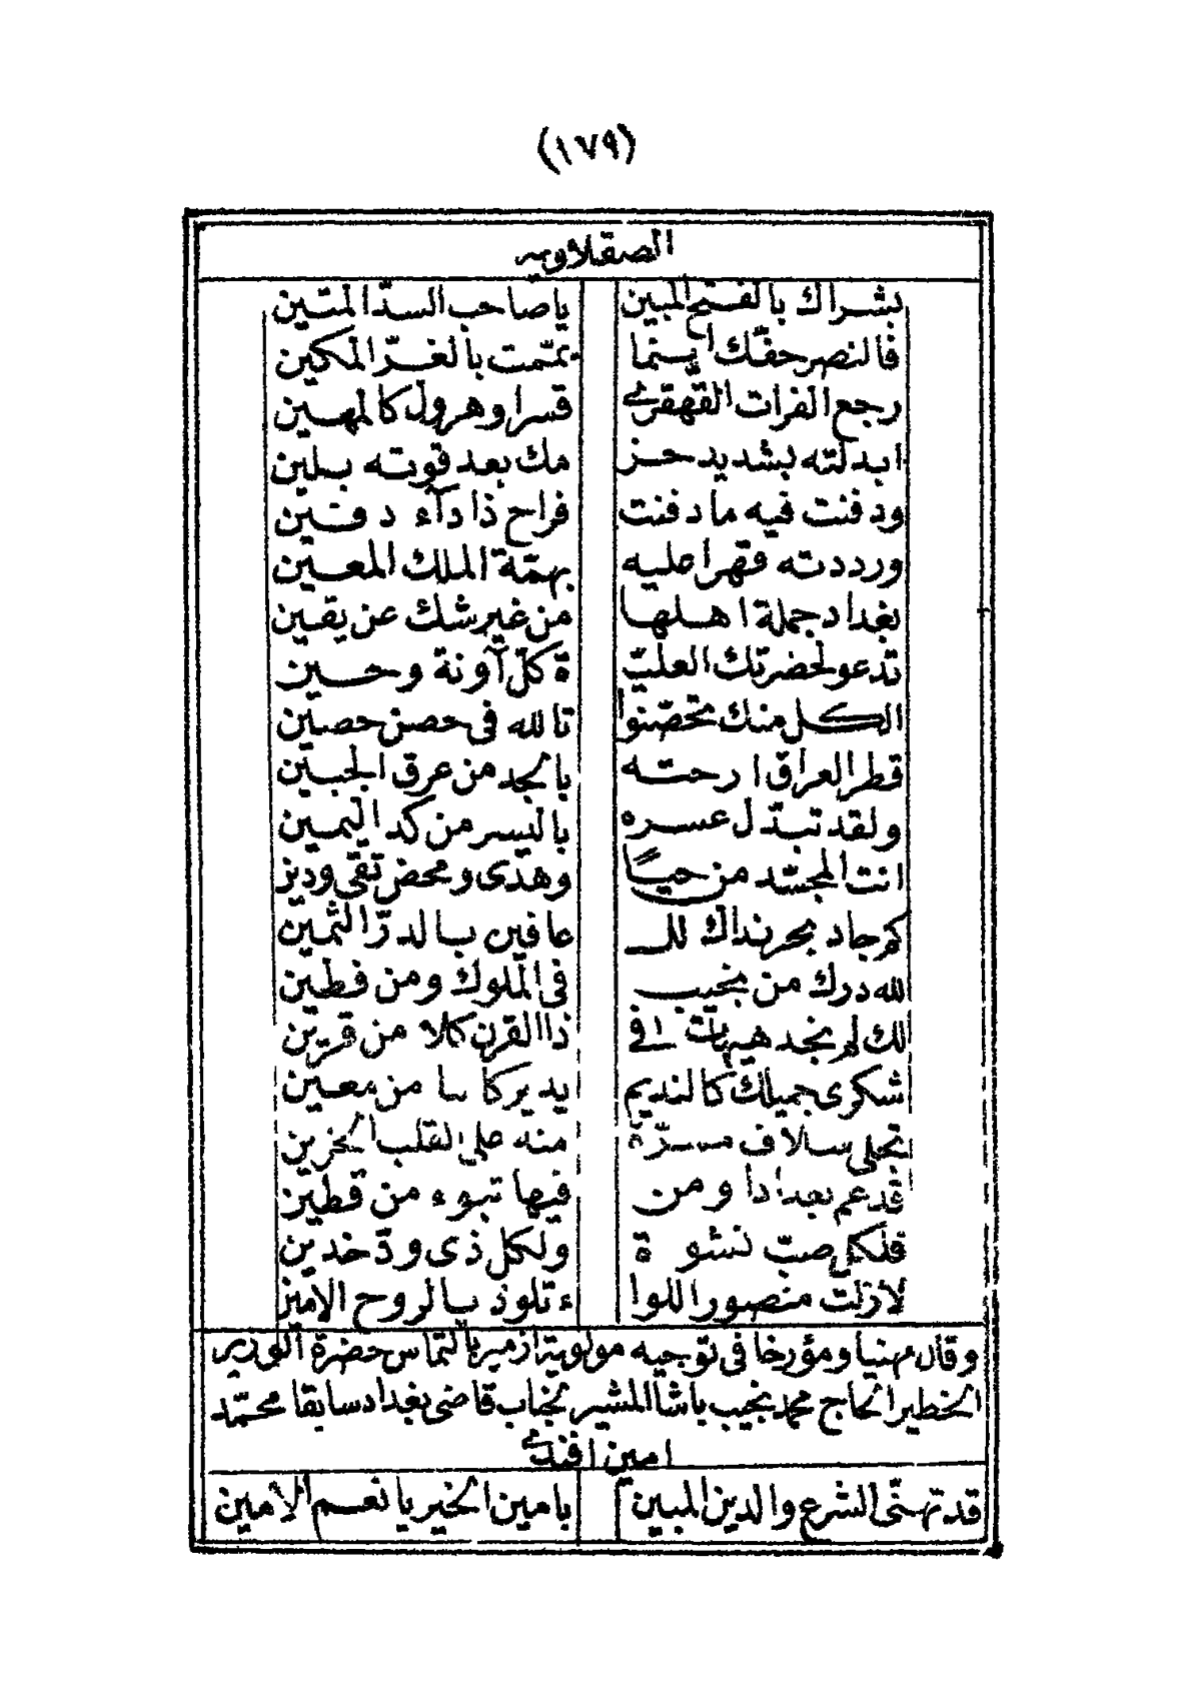 (١٧٩)
الصقلاويه
بشراك بالفتح المبين ياصاحب السدّ المتين
فالنصر حفّك اينما يمّمت بالغرّ المكين
رجع الفرات القهقرى قسرا وهرول كالمهين
ابدلته بشديد حز مك بعد قوته بلين
ودفنت فيه ما دفنت فراح ذا دآء دفين
ورددته قهرا عليه بهمّة الملك المعين
بغداد جملة اهلها من غير شك عن يقين
تدعو لحضرتك العليّ ة كلّ آونة وحين
الكل منك تحصّنوا تالله فى حصن حصين
قطر العراق ارحته بالجد من عرق الجبين
ولقد تبدّل عسره باليسر من كد اليمين
انت المجسّد من حياً وهدى ومحض تقى ودين
كم جاد بحر نداك لل عافين بالدرّ الثمين
لله درك من نجيب فى الملوك ومن فطين
لك لم نجد هيهات فى ذا القرن كلا من قرين
شكرى جميلك كالنديم يدير كاسا من معين
تجلى سلاف مسرّة منه على القلب الحزين
قد عم بغدادا ومن فيها تبوء من قطين
فلكل صبّ نشوة ولكل ذى ودّ خدين
لازلت منصور اللوا ء تلوذ بالروح الامين
وقال مهنيا ومؤرخا فى توجيه مولوية ازمير بالتماس حضرة الوزير
الخطير الحاج محمد نجيب باشا المشير لجناب قاضى بغداد سابقا محمّد
امين افندى
قد تهنّى الشرع والدين المبين بامين الخير يا نعم الامين